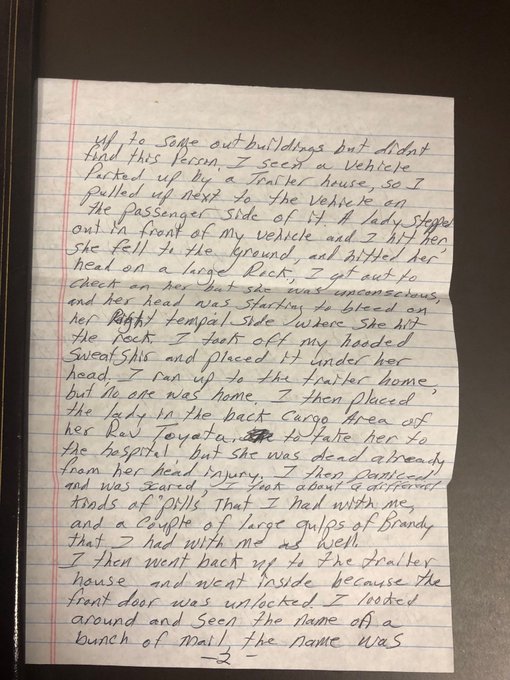 up to some outbuildings but didnt
find this Person. I seen a vehicle
Parked up by a Trailer house, so I
pulled up next to the vehicle on
the passenger side of it. A lady stepped
out in front of my vehicle and I hit her,
she fell to the ground, and hitted her
head on a large Rock, I got out to
check on her but she was unconscious,
and her head was starting to bleed on
her Right tempal side where she hit
the rock. I took off my hooded
Sweatshir and placed it under her
head. I ran up to the trailer home,
but no one was home. I then placed
the lady in the back Cargo Area of
her Rav Toyota, to take her to
the hospital, but she was dead already
from her head injury. I then paniced
and was scared, I took about different
Kinds of "pills" That I had with me,
and a couple of large gulps of Brandy
that I had with me as well.
I then went back up to the trailer
house and went inside because the
front door was unlocked. I looked
around and seen the name on a
bunch of mail, the name was
-2-